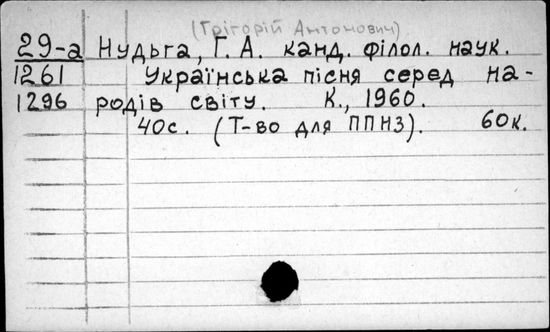 (Григорій Антонович)
29-а Нудьга, Г. А. канд. філол. наук.
1261 Українська пісня серед на-
1296 родів світу. К., 1960.
40с. (Т-во для ППНЗ). 60к.